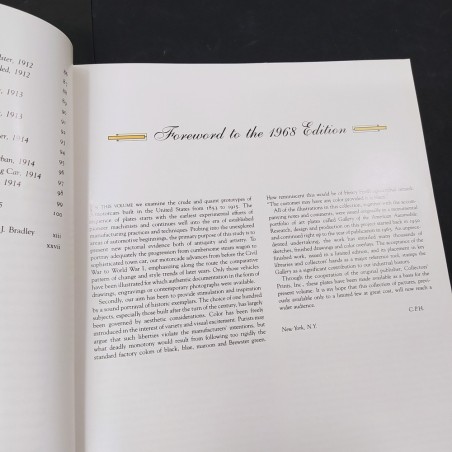 ster, 1912
led, 1912
, 1913
, 1913
er, 1914
ban, 1914
g Car, 1914
, 1914
5
J. Bradley
80
95
96
98
99
100
xiii
xxvii
Foreword to the 1968 Edition
IN THIS VOLUME we examine the crude and quaint prototypes of
built in the United States from 1853 to 1915. The
of plates starts with the earliest experimental efforts of
pioneer machinists and continues well into the era of established
manufacturing practices and techniques. Probing into the unexplored
areas of automotive beginnings, the primary purpose of this study is to
present new pictorial evidence both of antiquity and artistry. To
portray adequately the progression from cumbersome steam wagon to
sophisticated town car, our motorcade advances from before the Civil
War to World War I, emphasizing along the route the comparative
pattern of change and style trends of later years. Only those vehicles
have been illustrated for which authentic documentation in the form of
drawings, engravings or contemporary photographs were available.
Secondly, our aim has been to provide stimulation and inspiration
by a sound portrayal of historic exemplars. The choice of one hundred
subjects, especially those built after the turn of the century, has largely
been governed by aesthetic considerations. Color has been freely
introduced in the interest of variety and visual excitement. Purists may
argue that such liberties violate the manufacturers' intentions, but
what deadly monotony would result from following too rigidly the
standard factory colors of black, blue, maroon and Brewster green.
How reminiscent this would be of
"The customer may have any color provided
All of the illustrations in this collection, together with the accom-
panying notes and comments, were issued originally as a monumental
portfolio of art plates called Gallery of the American Automobile.
Research, design and production on this project started back in 1950
and continued right up to the year of publication in 1965. An unprece-
dented undertaking, the work has entailed many thousands of
sketches, finished drawings and color overlays. The acceptance of the
finished work, issued in a limited edition, and its placement in key
libraries and collectors' hands as a major reference tool, stamps the
Gallery as a significant contribution to our industrial history.
Through the cooperation of the original publisher, Collectors'
Prints, Inc., these plates have been made available for the
present volume. It is my hope that this collection of pictures, previ-
ously available only to a limited few at great cost, will now reach a
wider audience.
C.P.H.
New York, N.Y.